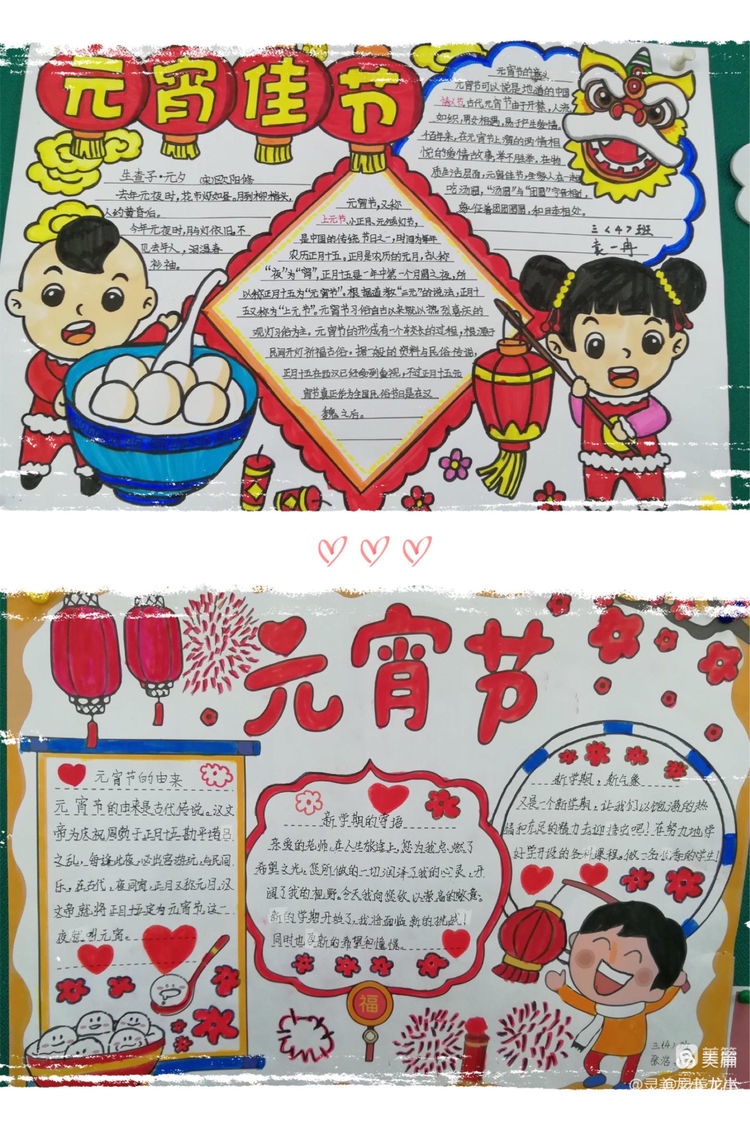 元宵佳节
生查子·元夕 (宋)欧阳修
去年元夜时,花市灯如昼。月到柳梢头,
人约黄昏后。
今年元夜时,月与灯依旧。不
见去年人,泪湿春
衫袖。
元宵节,又称
上元节、小正月、元夕或灯节,
是中国的传统节日之一,时间为每年
农历正月十五,正月是农历的元月,古人称
“夜”为“宵”,正月十五是一年中第一个月圆之夜,所
以称正月十五为“元宵节”。根据道教“三元”的说法,正月十
五又称为“上元节”。元宵节习俗自古以来就以热烈喜庆的
观灯习俗为主。元宵节的形成有一个较长的过程,根源于
民间开灯祈福古俗。据一般的资料与民俗传说,
正月十五在西汉已经受到重视,不过正月十五元
宵节真正作为全国民俗节日是在汉
魏之后。
元宵节的意义
元宵节可以说是地道的中国
情人节,古代元宵节由于开禁,人流
如织,男女相遇,易于产生爱情。
千百年来,在元宵节上演的两情相
悦的爱情故事,举不胜举。在物
吃汤圆,“汤圆”与“团圆”字音相近,
三〈4〉班
袁一冉
元宵节
元宵节的由来
元宵节的由来是古代传说。汉文
帝为庆祝周勃于正月十五勘平诸吕
之乱,每逢此夜,必出宫游玩,与民同
乐,在古代,夜同宵,正月又称元月,汉
文帝就将正月十五定为元宵节,这一
夜就叫元宵。
新学期的寄语
亲爱的老师,在人生旅途上,您为我点燃了
希望之光,您所做的一切润泽了我的心灵,开
阔了我的视野。今天我向您致以崇高的敬意。
新的学期开始了,我将面临新的挑战!
同时也是新的希望和憧憬
新学期,新气象
又是一个新学期,让我们以饱满的热
情和充足的精力去迎接它吧!在努力地学
好学开设的各科课程。做一名优秀的学生!
福
三(4)
张浩
美篇